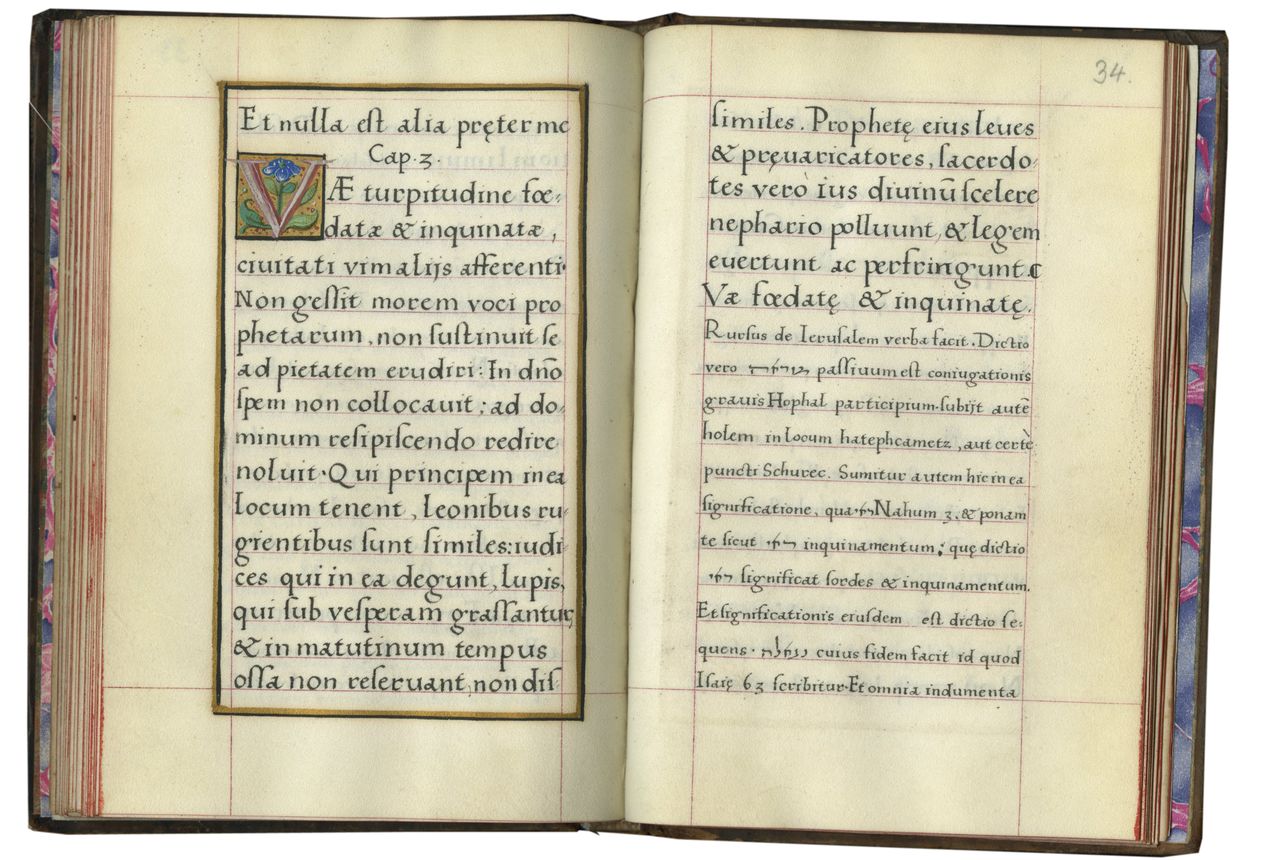 Et nulla est alia pręter me
Cap. 3.
VÆ turpitudine fœ-
datæ & inquinatæ,
ciuitati vim alijs afferenti.
Non gessit morem voci pro
phetarum, non sustinuit se
ad pietatem erudiri: In dño
spem non collocauit; ad do-
minum resipiscendo redire
noluit. Qui principem in ea
locum tenent, leonibus ru-
gientibus sunt similes: iudi-
ces qui in ea degunt, lupis,
qui sub vesperam grassantur,
& in matutinum tempus
ossa non reseruant, non dis-
34.
similes. Prophetę eius leues
& pręuaricatores, sacerdo-
tes verò ius diuinũ scelere
nephario polluunt, & legem
euertunt ac perfringunt.
Væ fœdatę & inquinatę.
Rursus de Ierusalem verba facit. Dictio
vero passiuum est coniugationis
grauis Hophal participium. subijt autẽ
holem in locum hatephcametz, aut certè
puncti Schurec. Sumitur autem hic in ea
significatione, qua Nahum 3. & ponam
te sicut inquinamentum; quę dictio
significat sordes & inquinamentum.
Et significationis eiusdem est dictio se-
quens. cuius fidem facit id quod
Isaię 63 scribitur. Et omnia indumenta